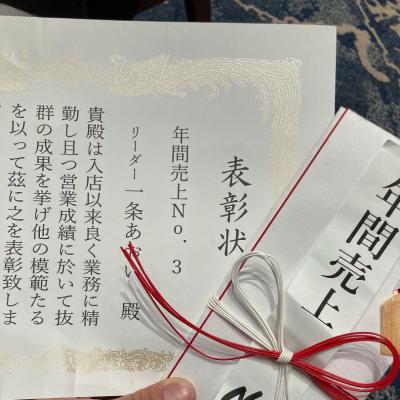 表彰状
年間売上No.3
リーダー 一条あおい 殿
貴殿は入店以来良く業務に精
勤し且つ営業成績に於いて抜
群の成果を挙げ他の模範たる
を以って茲に之を表彰致しま
年間売上